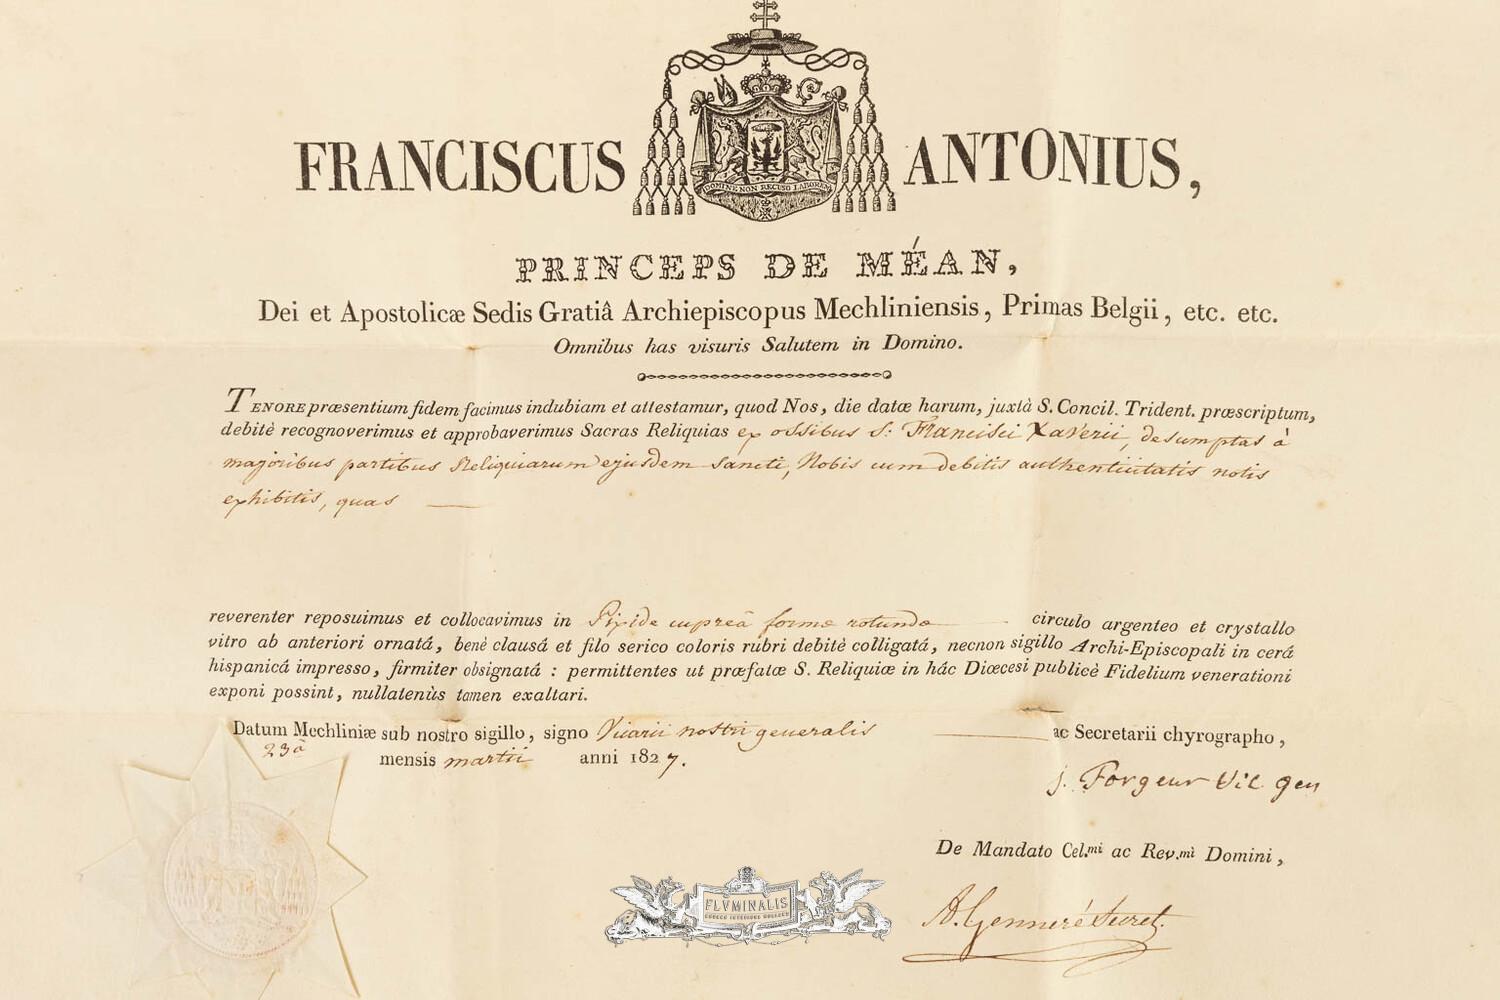 FRANCISCUS ANTONIUS,
DOMINE NON RECUSO LABOREM
PRINCEPS DE MÉAN,
Dei et Apostolicæ Sedis Gratiâ Archiepiscopus Mechliniensis, Primas Belgii, etc. etc.
Omnibus has visuris Salutem in Domino.
TENORE præsentium fidem facimus indubiam et attestamur, quod Nos, die datæ harum, juxtà S. Concil. Trident. præscriptum,
debitè recognoverimus et approbaverimus Sacras Reliquias ex ossibus S: Francisci Xaverii, desumptas à
majoribus partibus Reliquiarum ejusdem sancti, Nobis cum debitis authenticitatis notis
exhibitis, quas —
reverenter reposuimus et collocavimus in Pixide cupreâ formæ rotundæ — circulo argenteo et crystallo
vitro ab anteriori ornatá, benè clausá et filo serico coloris rubri debitè colligatá, necnon sigillo Archi-Episcopali in cerá
hispanicá impresso, firmiter obsignatá : permittentes ut præfatæ S. Reliquiæ in hác Diœcesi publicè Fidelium venerationi
exponi possint, nullatenùs tamen exaltari.
Datum Mechliniæ sub nostro sigillo, signo Vicarii nostri generalis — ac Secretarii chyrographo,
23â mensis martii anni 1827.
j. Forgeur Vic gen
De Mandato Cel.mi ac Rev.mi Domini,
FLVMINALIS
A. Genneré Secret.